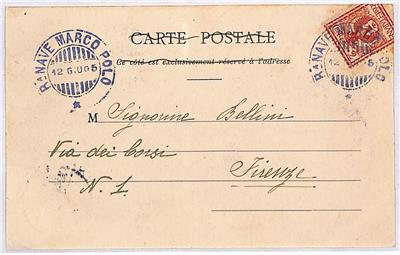 CARTE POSTALE
Ce côté est exclusivement réservé à l'adresse
R.NAVE MARCO POLO
12 6.06 5
R.NAVE MARCO POLO
12
M Signorine Bellini
Via dei Corsi
Firenze
N. 1